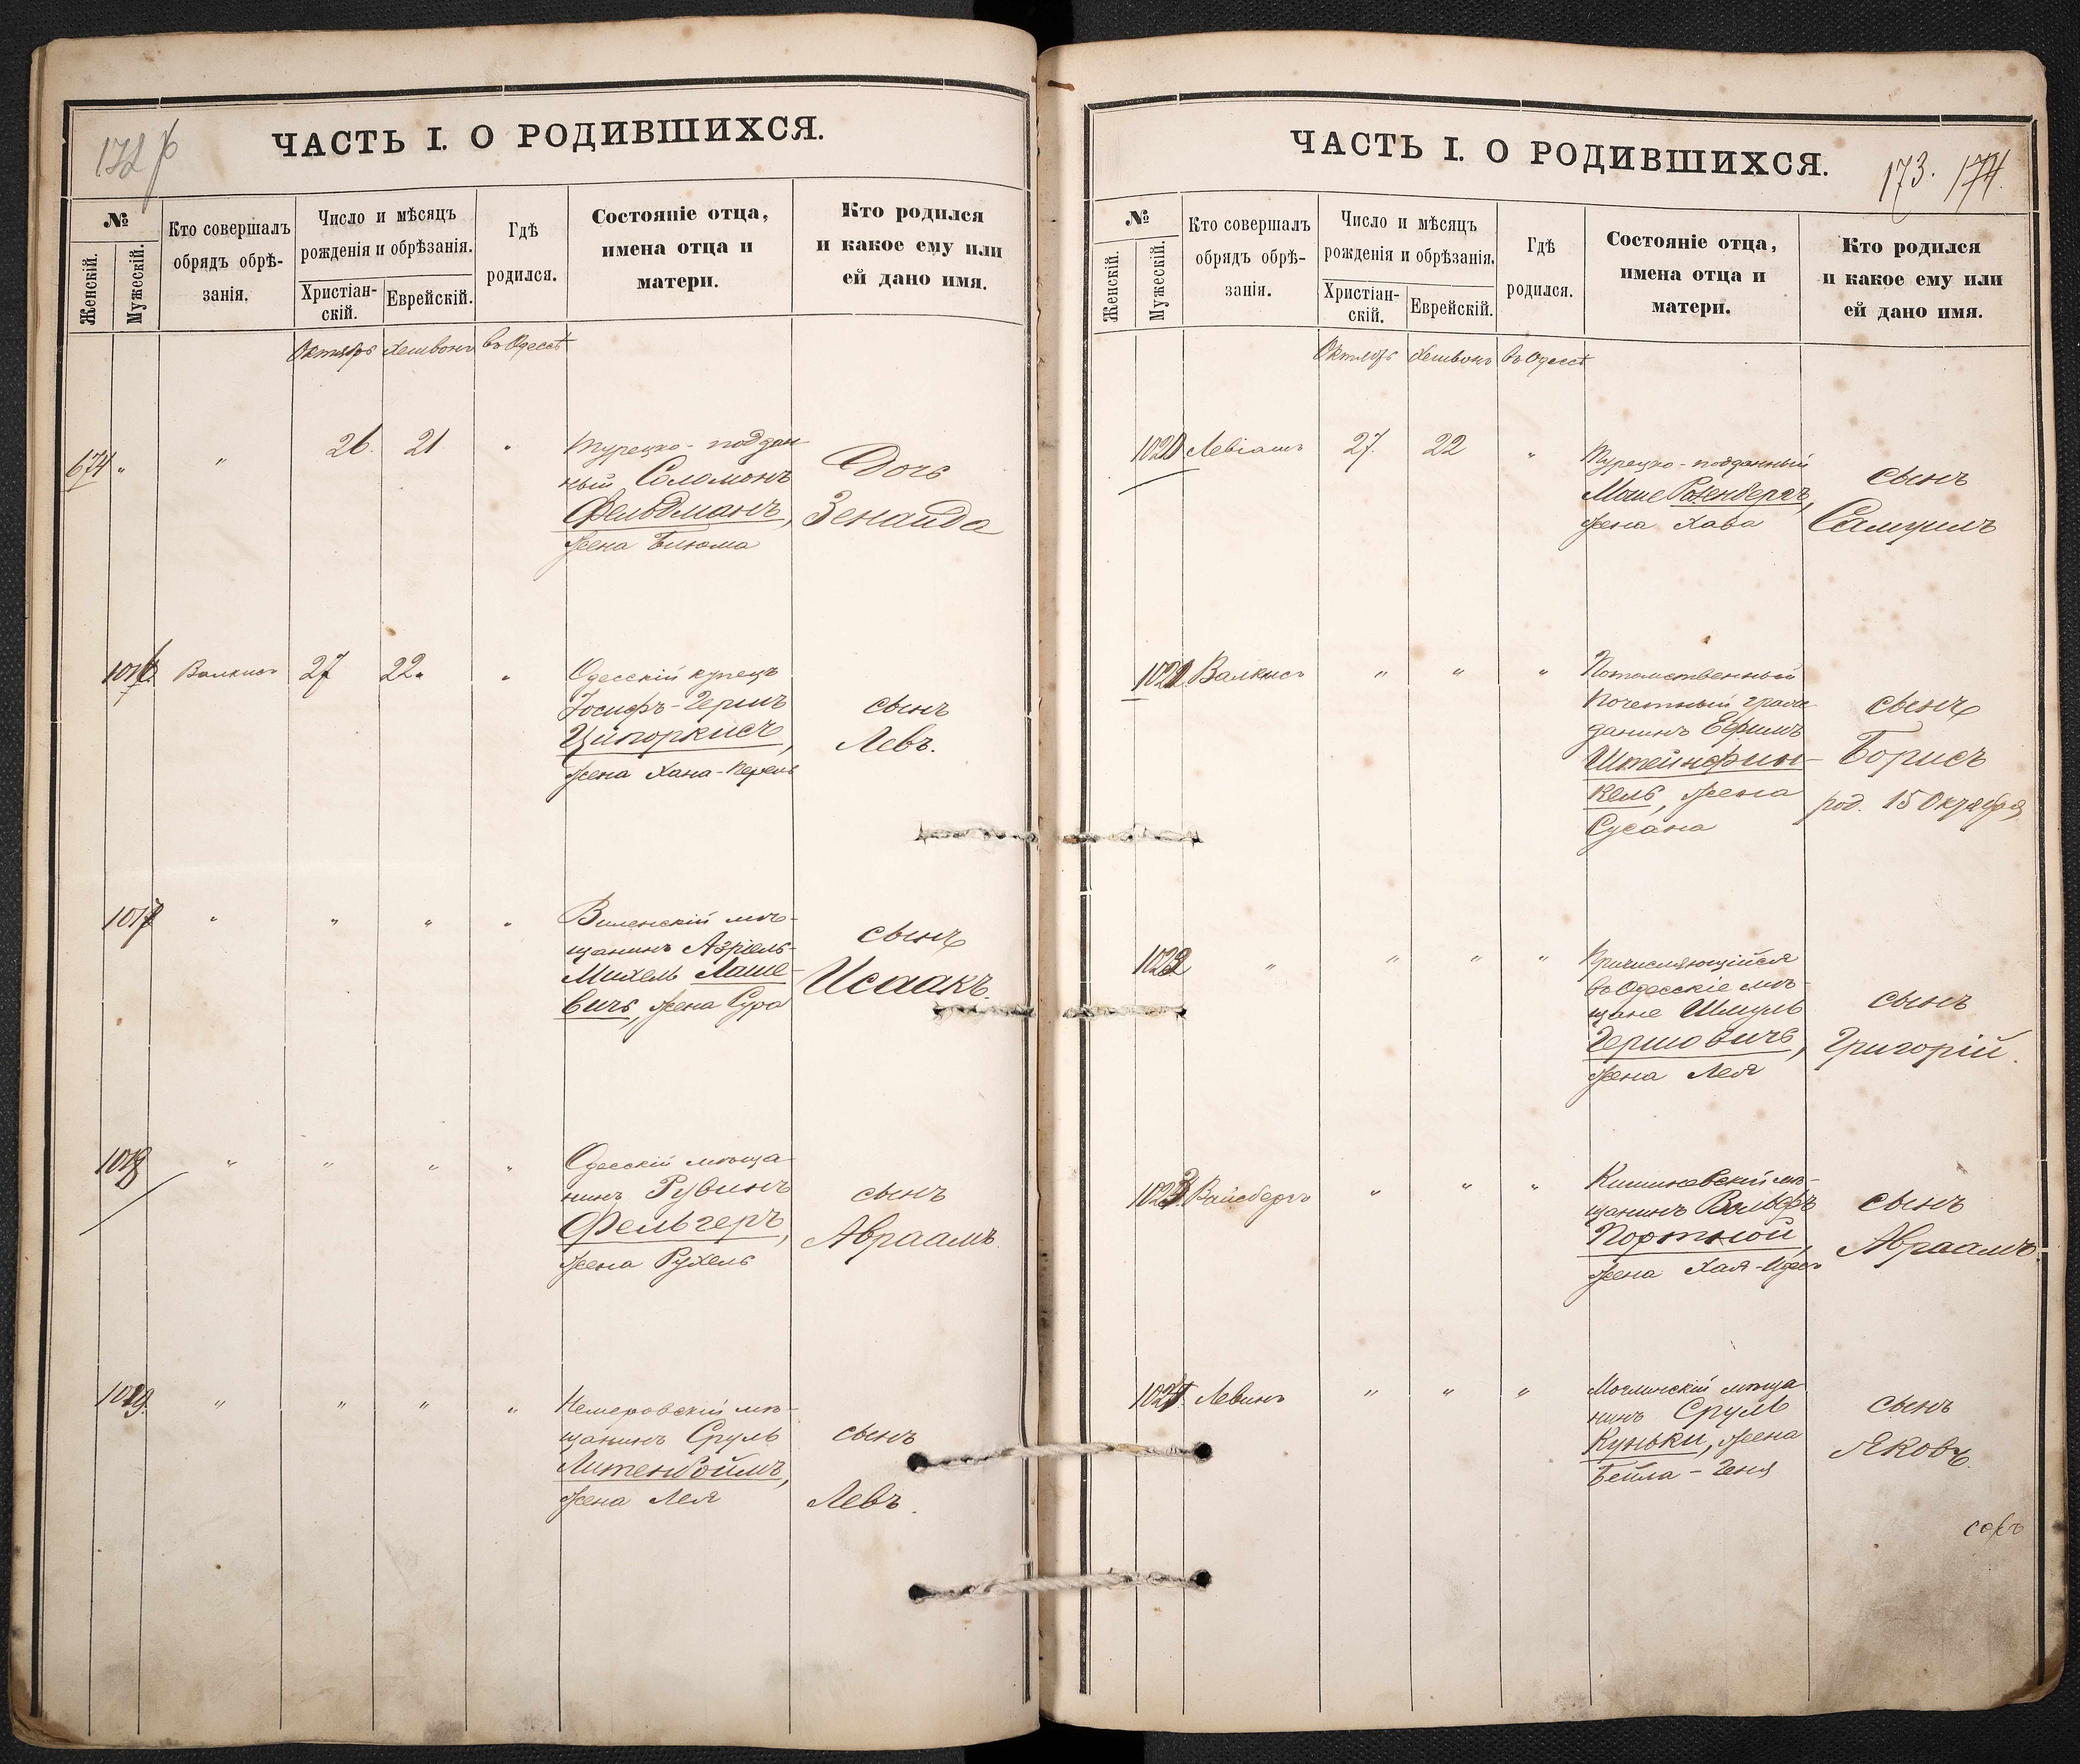 ЧАСТЬ I. О РОДИВШИХСЯ.
№
Женскій.
Мужескій.
Кто совершалъ
обрядъ обрѣ-
занія.
Число и мѣсяцъ
рожденія и обрѣзанія.
Христіан-
скій.
Еврейскій.
Гдѣ
родился.
Состояніе отца,
имена отца и
матери.
Кто родился
и какое ему или
ей дано имя.
Октябрь Хешвонъ въ Одессѣ
674 " " 26. 21 "
Турецко-поддан
ный Соломонъ
Фельдманъ,
жена Блюма
Дочь
Зенаида
1016. Валкисъ 27 22. "
Одесскій купецъ
Іосифъ-Гершъ
Ципоркисъ,
жена Хана-Перель
сынъ
Левъ.
1017 " " " "
Виленскій мѣ-
щанинъ Азріель-
Михель Лаше-
вичъ, жена Сура
сынъ
Исаакъ.
1018 " " " "
Одесскій мѣща
нинъ Рувинъ
Фельгеръ,
жена Рухель
сынъ
Авраамъ.
1019. " " " "
Немеровскій мѣ-
щанинъ Сруль
Литенбоймъ,
жена Лея
сынъ
Левъ.
ЧАСТЬ I. О РОДИВШИХСЯ.
173. 174.
№
Женскій.
Мужескій.
Кто совершалъ
обрядъ обрѣ-
занія.
Число и мѣсяцъ
рожденія и обрѣзанія.
Христіан-
скій.
Еврейскій.
Гдѣ
родился.
Состояніе отца,
имена отца и
матери.
Кто родился
и какое ему или
ей дано имя.
Октябрь Хешвонъ въ Одессѣ
1020 27. 22 "
Турецко-подданный
Моше Розенбергъ,
жена Хава
сынъ
Самуилъ
1021. Валкисъ " " "
Потомственный
Почетный граж
данинъ Ефимъ
Штейнфин-
кель, жена
Сусана
сынъ
Борисъ
род. 15 Октября
1022 " " " "
Причисляющійся
въ Одесскіе мѣ-
щане Шмуль
Гершовичъ,
жена Лея
сынъ
Григорій.
1023. Вайсбергъ " " "
Кишиневскій мѣ-
щанинъ Вольфъ
Портной,
жена Хая-
сынъ
Авраамъ.
1024. Левинъ " " "
мѣща
нинъ Сруль
Куньки, жена
Бейла-Геня
сынъ
Яковъ.